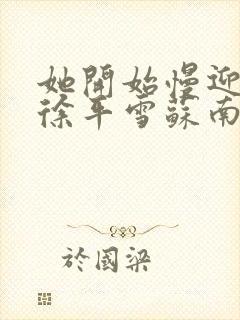 她開始慢迎
徐平雪蘇南
於國梁